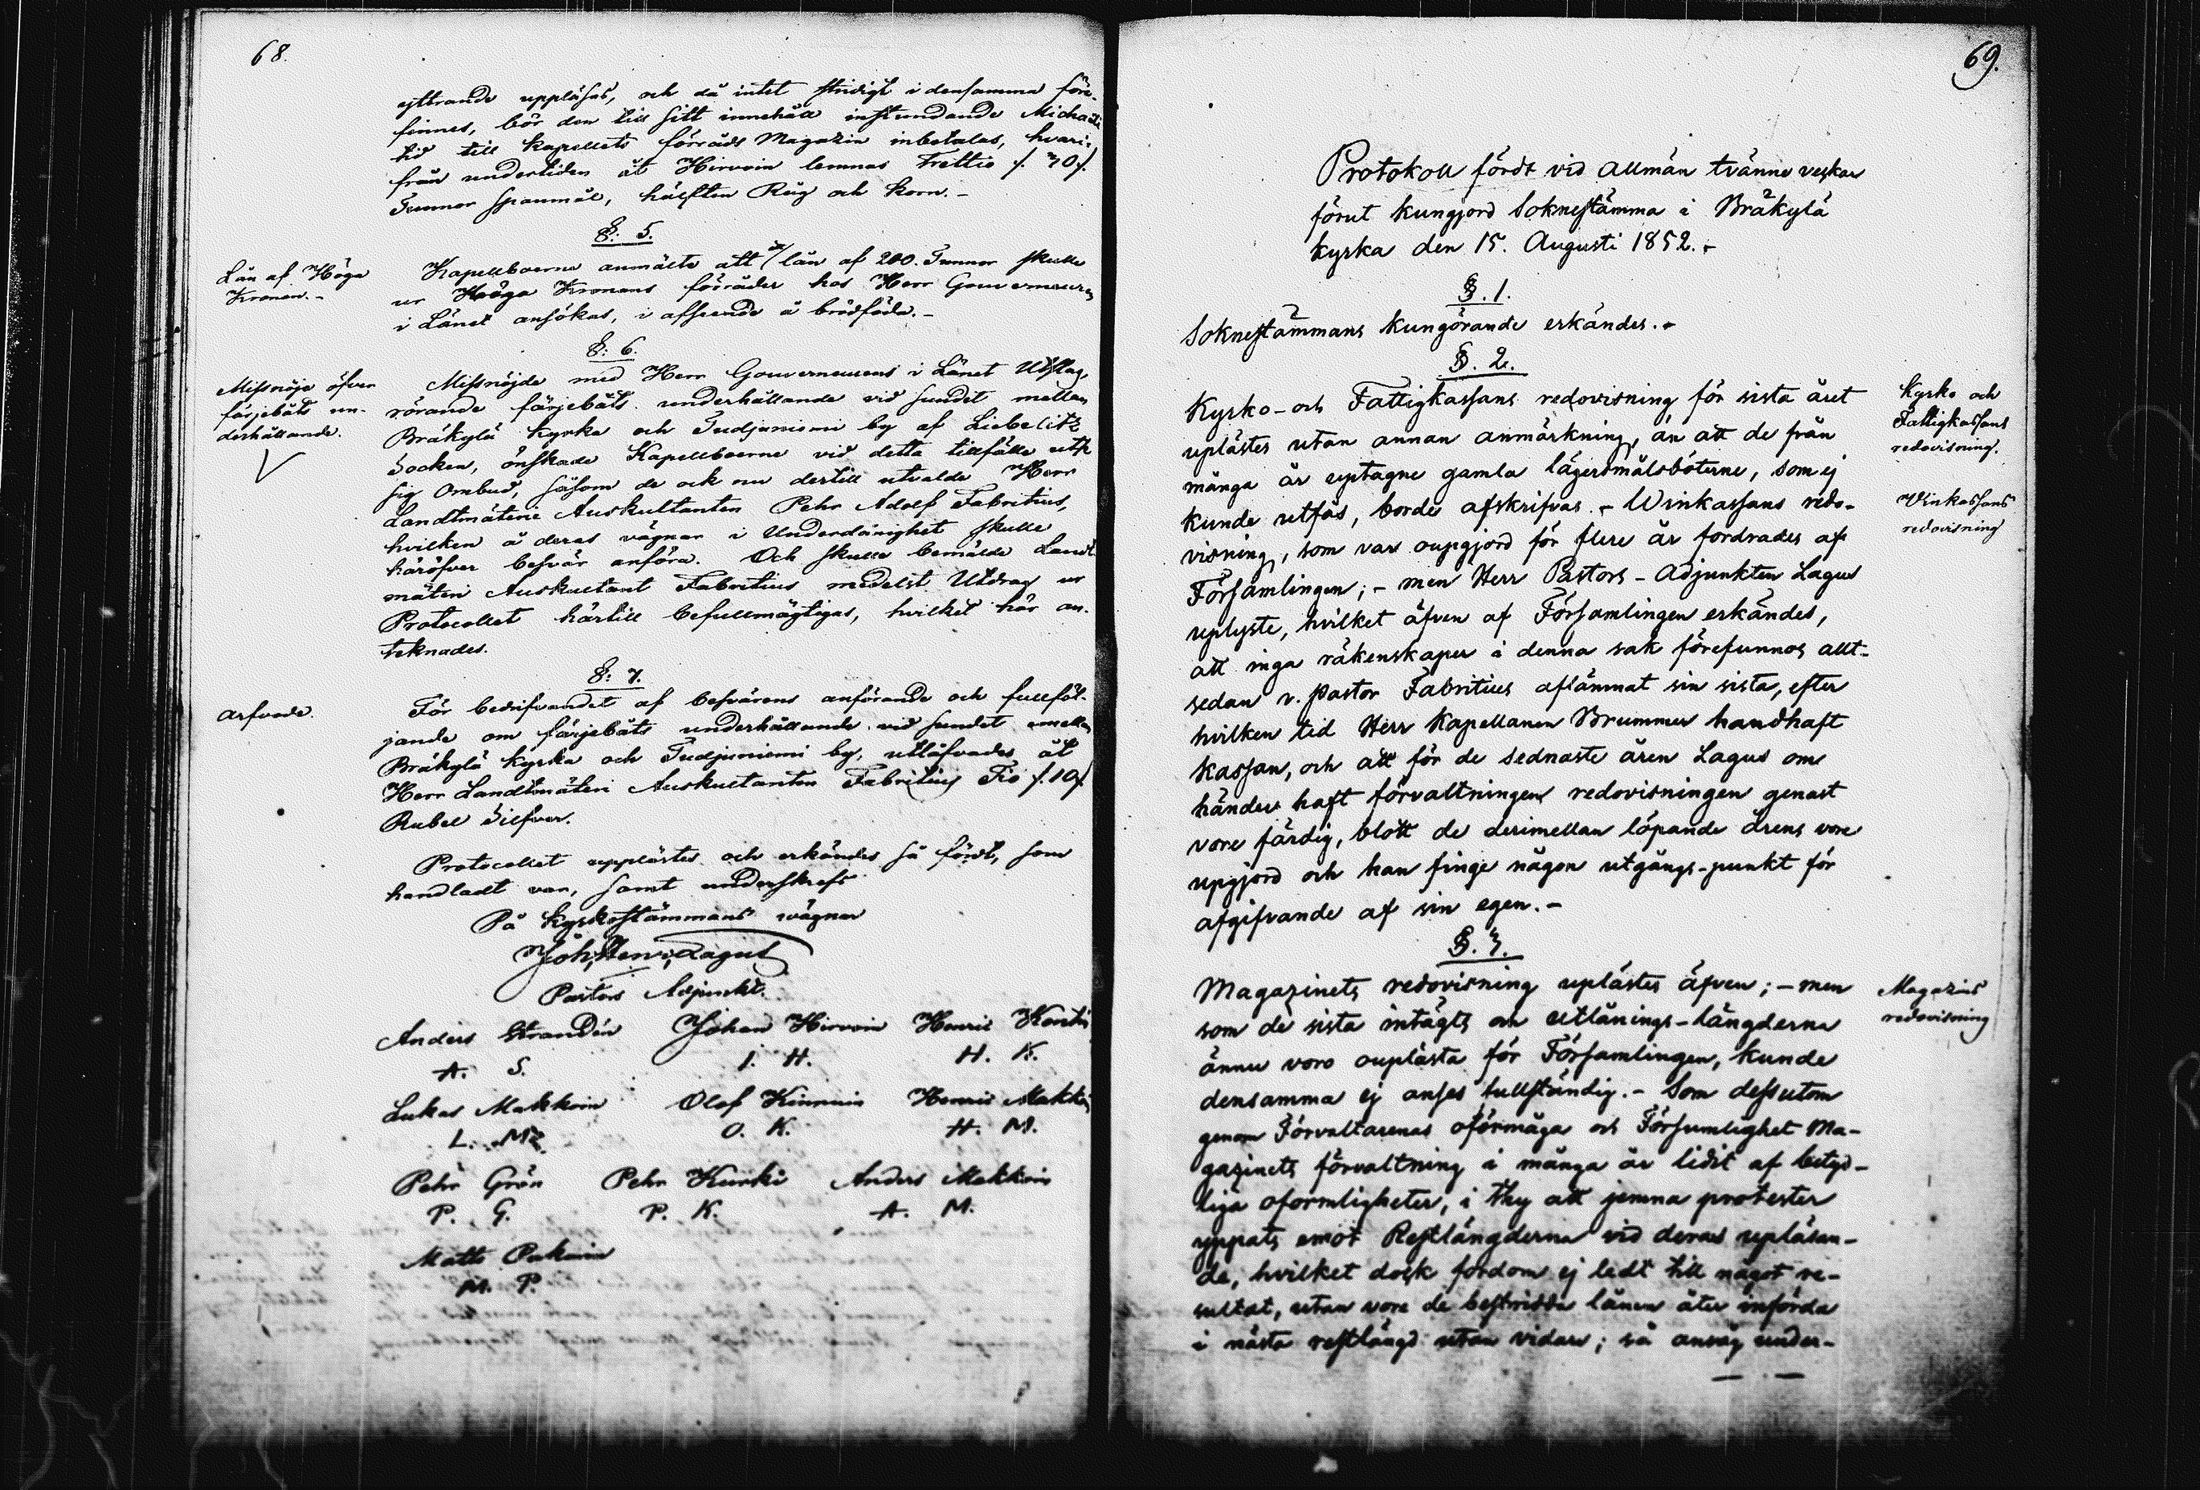 68.
yttrande uppläsas, och då intet stridigt i densamma före-
finnes, bör den till sitt innehåll instundande Michaeli
tid till kapellets förråds Magazin inbetalas, hvari-
från undertiden åt Hirvoin lemnas Trettio /. 30/.
Tunnor spanmål, hälften Råg och korn. -
§: 5.
Lån af Höga
Kronan. -
Kapellboerne anmälte att ett lån af 200. Tunnor skulle
ur Höga Kronans förråder hos Herr Gouverneuren
i Länet ansökas, i afseende å brödföda. -
§: 6.
Missnöje öfver
färjebåts un-
derhållande.
Missnöjde med Herr Gouverneurens i Länet Utslag,
rörande färjebåts underhållande vid sundet mellan
Bräkylä kyrka och Tudjuniemi by af Liebelitz
Socken, önskade Kapellboerne vid detta tillfälle utse
sig Ombud, såsom de ock nu dertill utvalde Herr
Landtmäterie Auskultanten Pehr Adolf Fabritius,
hvilken å deras vägnar i Underdånighet skulle
häröfver besvär anföra. Och skulle bemälde Landt
mäteri Auskultant Fabritius medelst Utdrag ur
Protocollet härtill befullmägtigas, hvilket här an-
teknades.
§: 7.
arfvode.
För bedrifvandet af besvärens anförande och fullföl-
jande om färjebåts underhållande vid sundet emellan
Bräkylä kyrka och Tudjuniemi by, utläfvades åt
Herr Landtmäteri Auskultanten Fabritius Tio /.10/.
Rubel Silfver.
Protocollet upplästes och erkändes så fördt, som
handladt var, samt underskrefs
På Kyrkostämmans wägnar
Joh, Henr, Lagus
Pastors Adjunkt.
Anders Strandén Johan Hirvoin Henric Karttu
A. S. J. H. H. K.
Lukas Makkoin Olof Kinnunin Henric Makkoin
L. M. O. K. H. M.
Pehr Grön Pehr Kurki Anders Makkoin
P. G. P. K. A. M.
Matts Pakarin
M. P.
69.
Protokoll fördt vid allmän tvänne veckar
förut kungjord Soknestämma i Bräkylä
kyrka den 15. Augusti 1852. -
§. 1.
Soknestämmans kungörande erkändes. -
§. 2.
Kyrko- och Fattigkassans redovisning för sista året
uplästes utan annan anmärkning, än att de från
många år uptagne gamla lägersmålsböterne, som ej
kunde utfås, borde afskrifvas. - Winkassans redo-
visning, som var oupgjord för flere år fordrades af
Församlingen; - men Herr Pastors - Adjunkten Lagus
uplyste, hvilket äfven af Församlingen erkändes,
att inga räkenskaper i denna sak förefunnos allt-
sedan v. pastor Fabritius aflämnat sin sista, efter
hvilken tid Herr Kapellanen Brummer handhaft
kassan, och att för de sednaste åren Lagus om
händer haft förvaltningen redovisningen genast
vore färdig, blott de derimellan löpande årens vore
upgjord och han finge någon utgångs-punkt för
afgifvande af sin egen. -
Kyrko och
Fattigkassans
redovisning.
Vinkassans
redovisning
§. 3.
Magazinets redovisning uplästes äfven; - men
som de sista intägts och utlånings-längderna
ännu voro ouplästa för Församlingen, kunde
densamma ej anses fullständig. - Som dessutom
genom Förvaltarenas oförmåga och Försumlighet Ma-
gazinets förvaltning i många år lidit af betyd-
liga oformligheter, i thy att jemna protester
yppats emot Restlängderna vid deras upläsan-
de, hvilket dock fordom ej ledt till något re-
sultat, utan vore de bestridda lånen åter införda
i nästa restlängd utan vidare; så ansåg under-
Magazins
redovisning